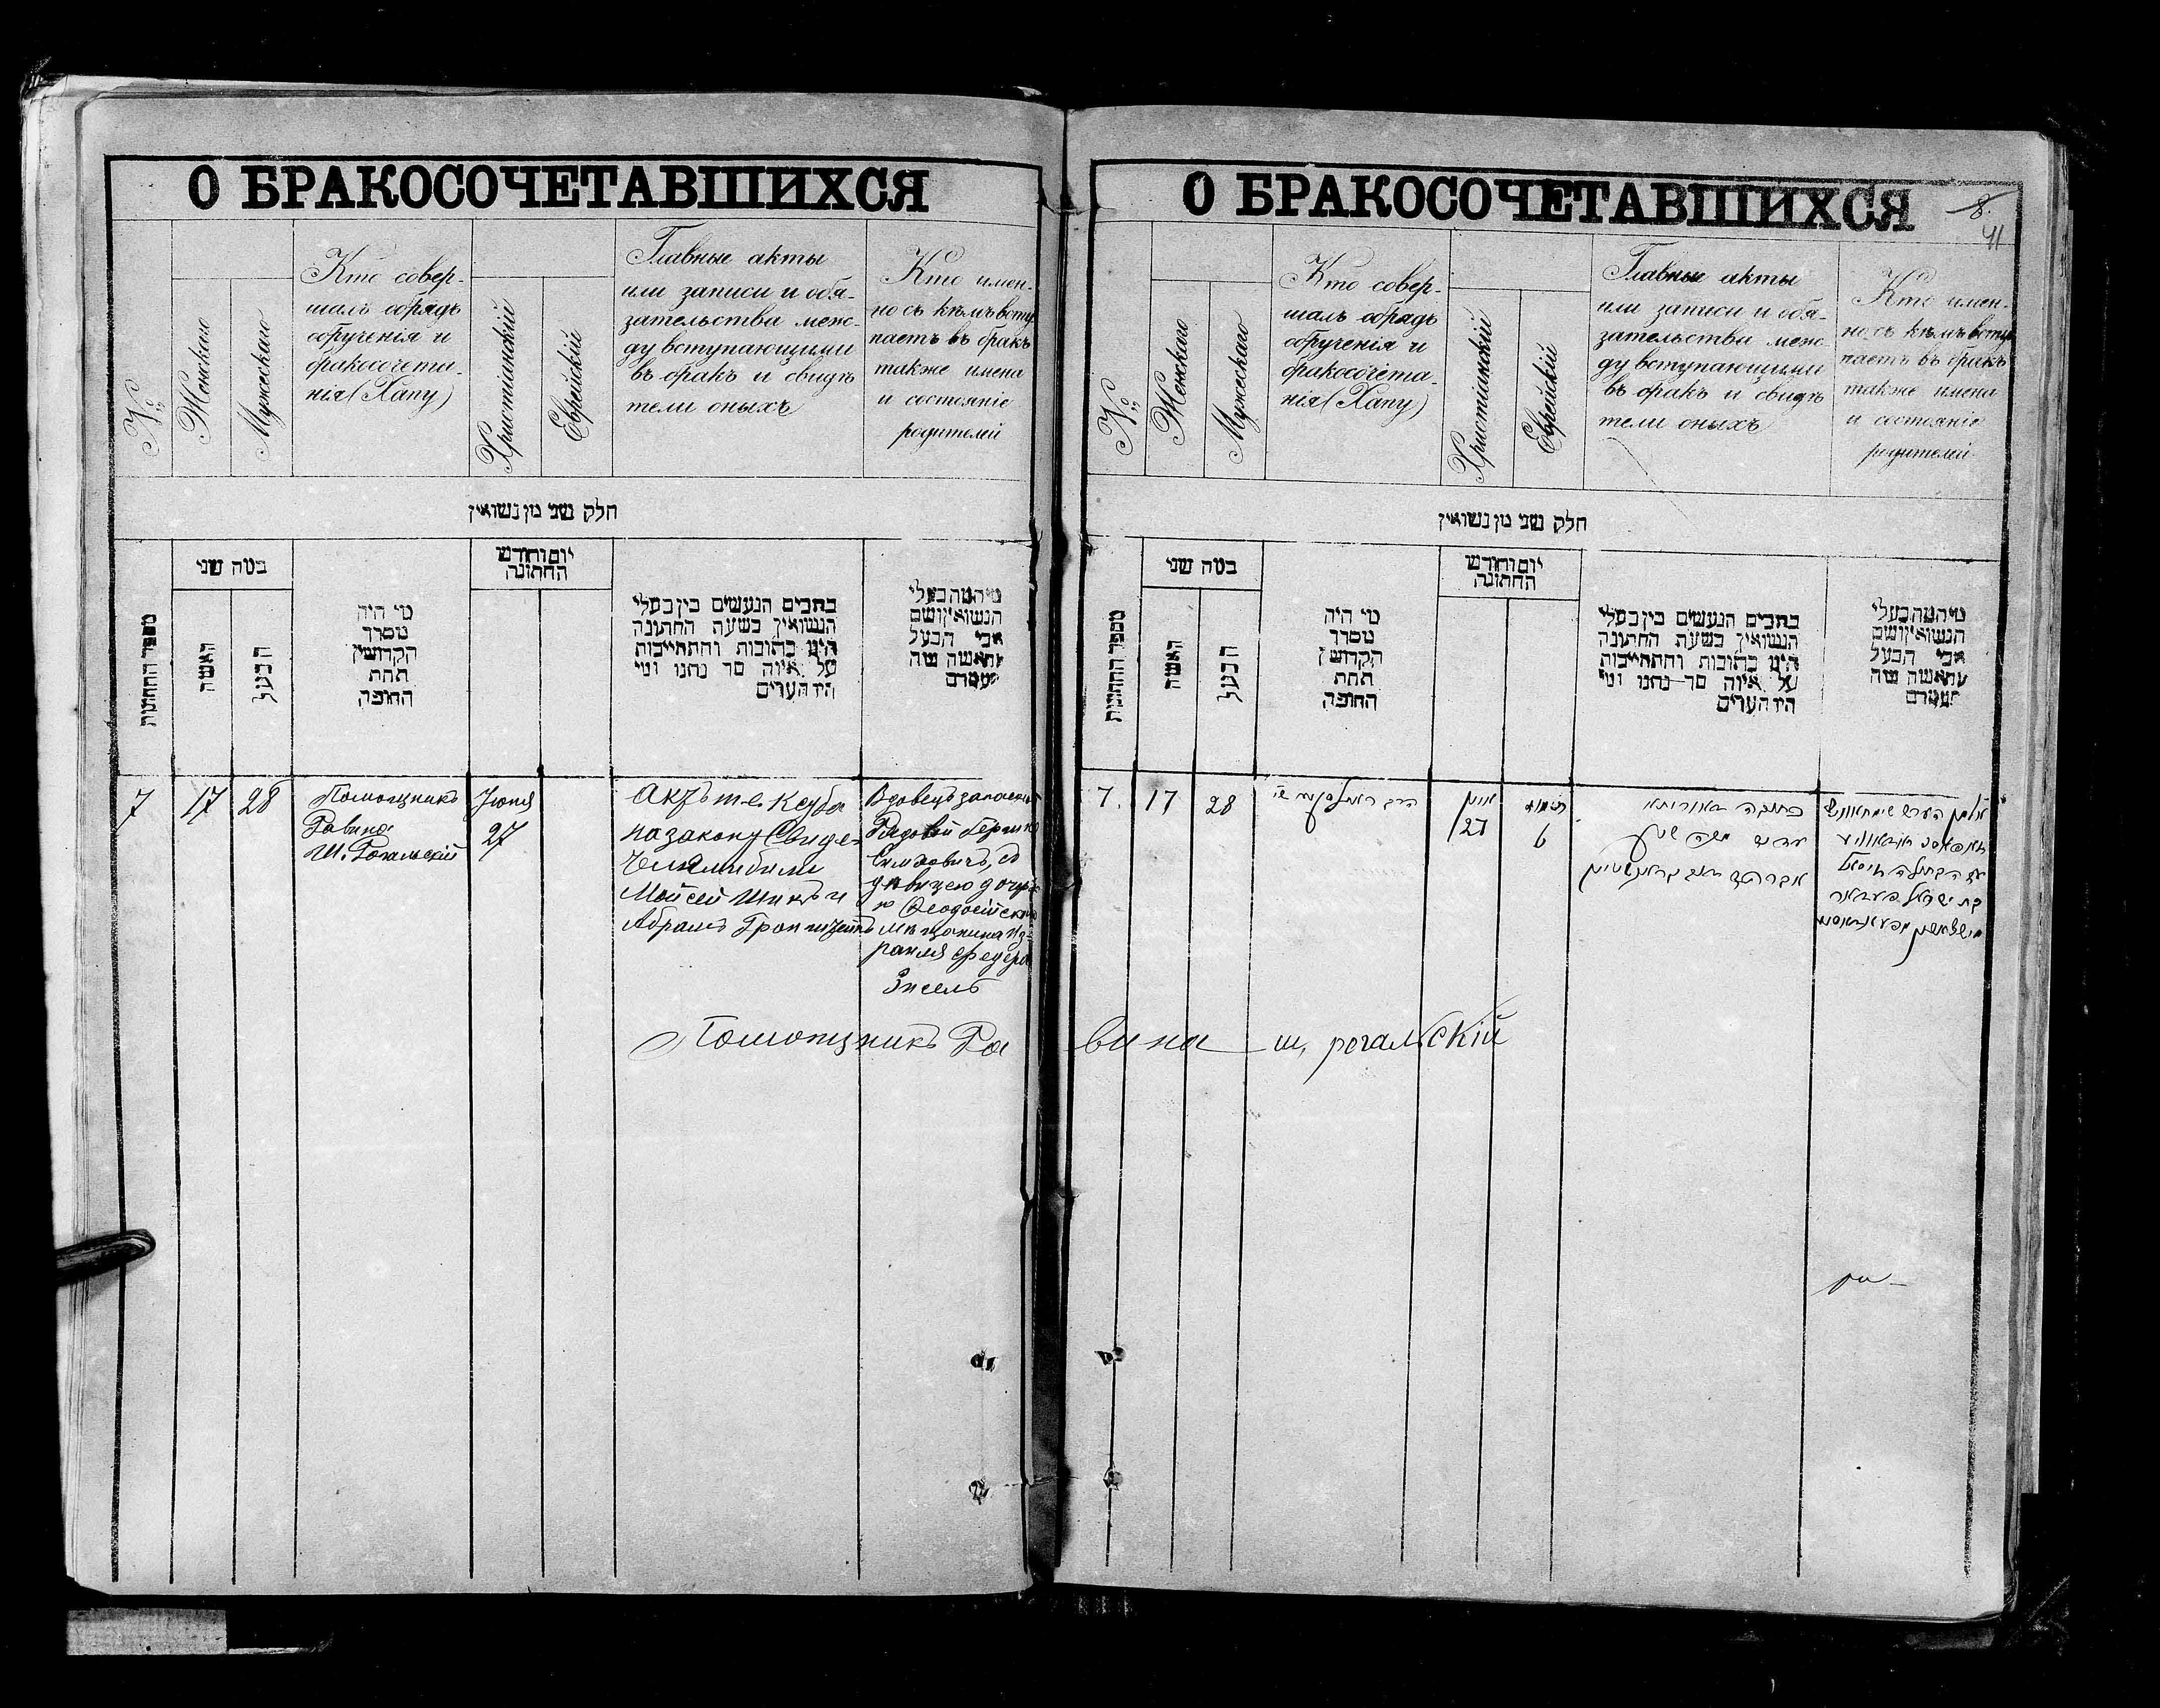 О БРАКОСОЧЕТАВШИХСЯ
№
Женскаго
Мужескаго
Кто совер-
шалъ обрядъ
обрученія и
бракосочета-
нія (Хапу)
Христіанскій
Еврейскій
Главные акты
или записи и обя-
зательства меж-
ду вступающими
въ бракъ и свидѣ
тели оныхъ
Кто имен-
но съ кѣмъ всту
паетъ въ бракъ
также имена
и состояніе
родителей
חלק שני מן נשואין
מספר החתונות
כמה שני
האשה
הבעל
מי היה
מסדר
הקדושין
תחת
החופה
יום וחודש
החתונה
כתבים הנעשים בין בעלי
הנשואין בשעת החתונה
היינו כתובות והתחייבות
על איזה סך נתנו ומי
היו העדים
מי המה בעלי
הנשואין ושם
אבי הבעל
והאשה ומה
מעמדם
7
17
28
Помощникъ
Равина
Ш. Рогальскій
Іюня
27
Актъ т.е. Кесуба
по закону Свиде-
Мойсей Шикъ и
Абрамъ
Вдовецъ запасный
Рядовой Гершко
Симховичъ, съ
дѣвицею дочер
ю Феодосійскаго
мѣщанина Из-
раиля
Помощникъ Ра
О БРАКОСОЧЕТАВШИХСЯ
8.
41
№
Женскаго
Мужескаго
Кто совер-
шалъ обрядъ
обрученія и
бракосочета-
нія (Хапу)
Христіанскій
Еврейскій
Главные акты
или записи и обя-
зательства меж-
ду вступающими
въ бракъ и свидѣ
тели оныхъ
Кто имен-
но съ кѣмъ всту
паетъ въ бракъ
также имена
и состояніе
родителей
חלק שני מן נשואין
מספר החתונות
כמה שני
האשה
הבעל
מי היה
מסדר
הקדושין
תחת
החופה
יום וחודש
החתונה
כתבים הנעשים בין בעלי
הנשואין בשעת החתונה
היינו כתובות והתחייבות
על איזה סך נתנו ומי
היו העדים
מי המה בעלי
הנשואין ושם
אבי הבעל
והאשה ומה
מעמדם
7.
17
28
הרב
יוני
27
תמוז
6
כתובה דאורייתא
עדים משה שיק
אלמן הערש
עם הבתולה
בת ישראל
вина ш, рогальскій